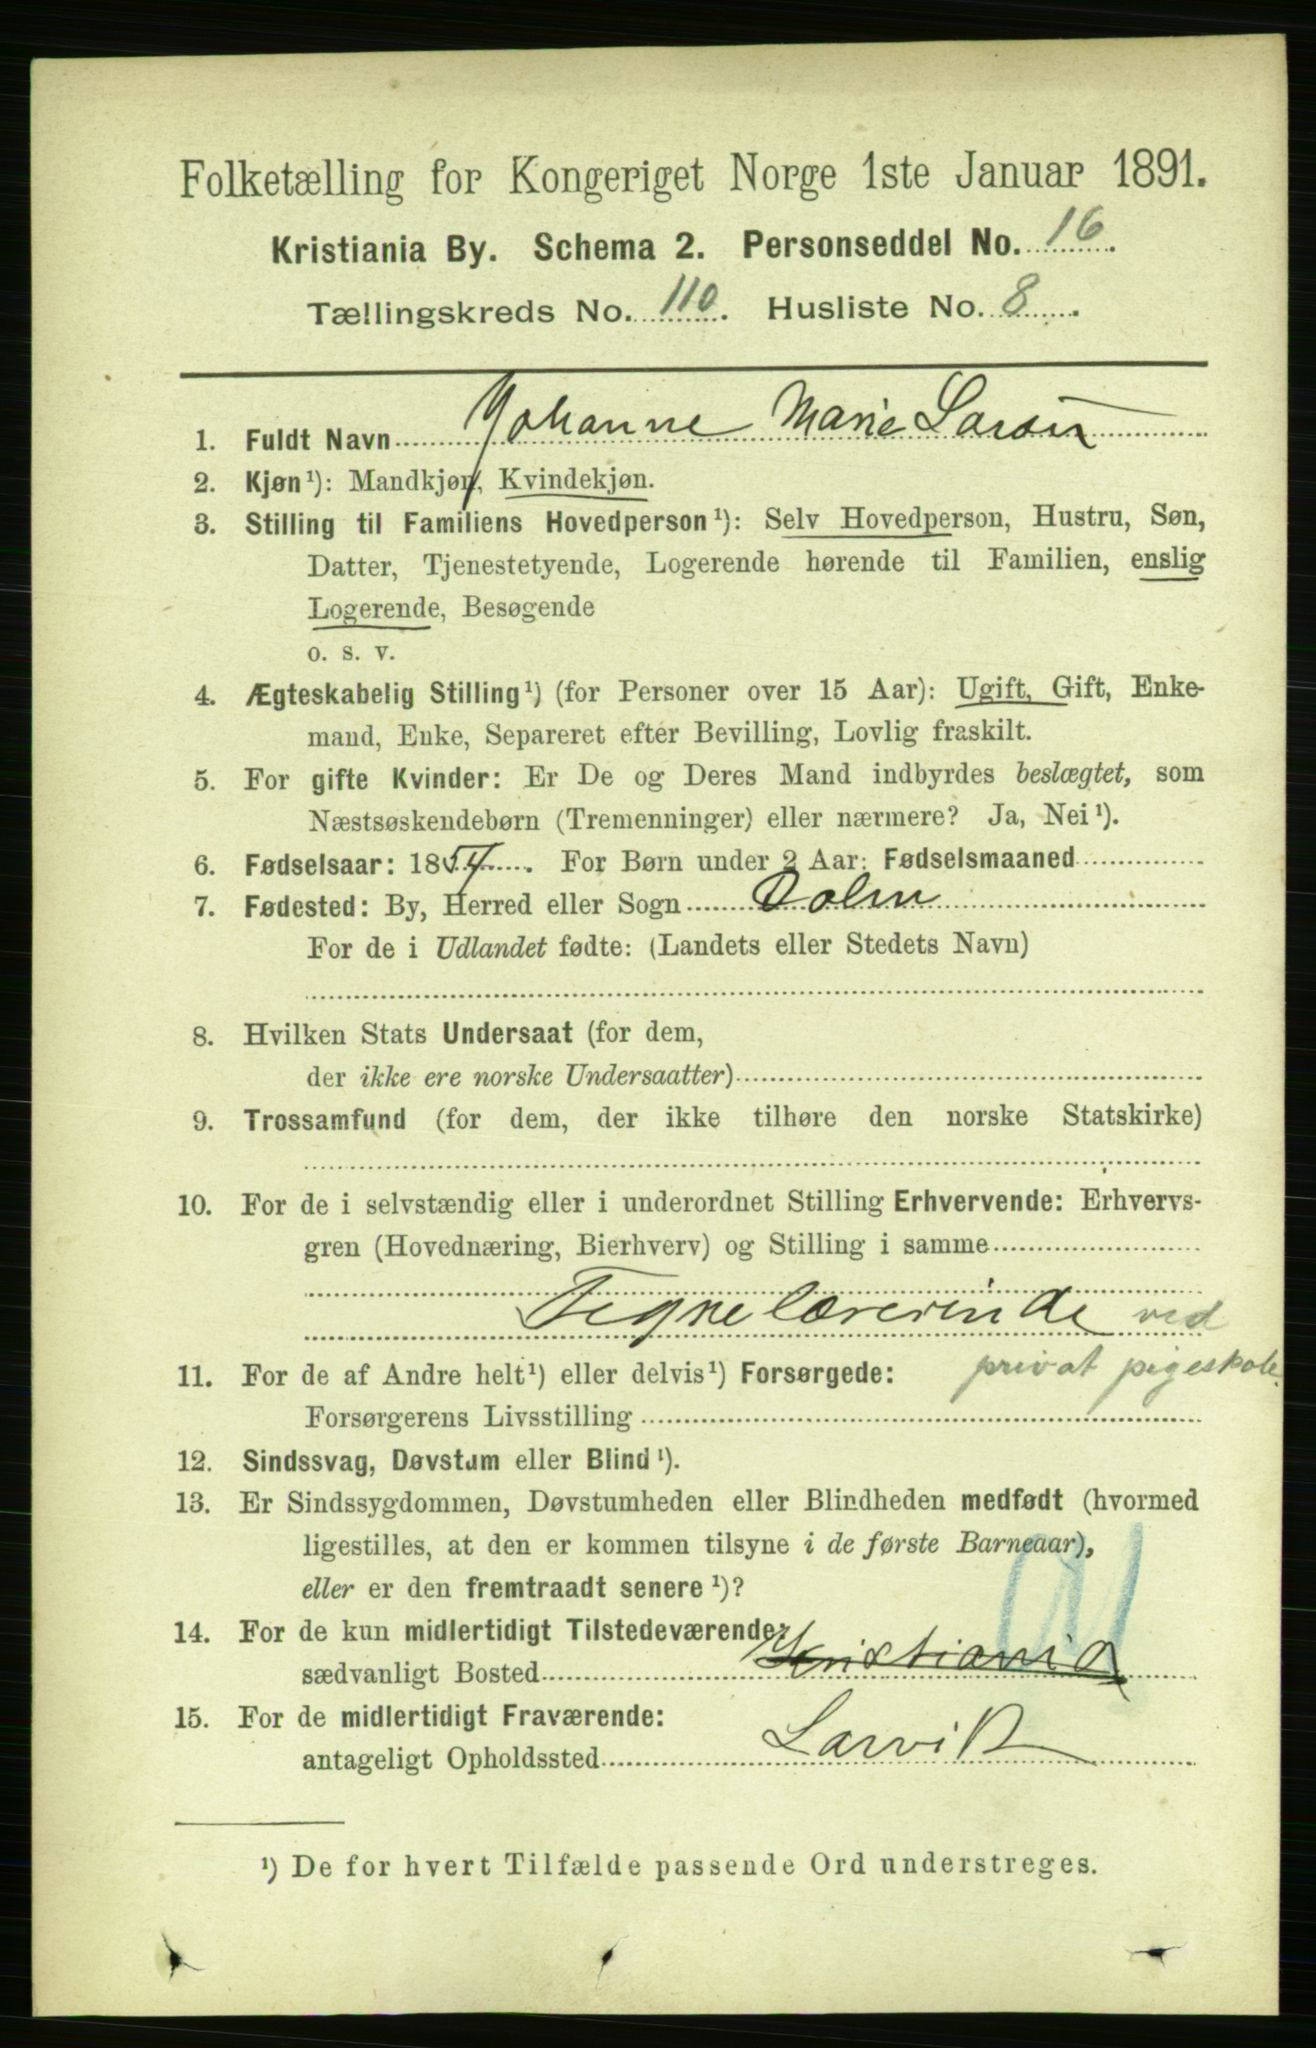 Folketælling for Kongeriget Norge 1ste Januar 1891.
Kristiania By. Schema 2. Personseddel No. 16.
Tællingskreds No. 110. Husliste No. 8.
1. Fuldt Navn Johanne Marie Larsen
2. Kjøn¹): Mandkjøn, Kvindekjøn.
3. Stilling til Familiens Hovedperson¹): Selv Hovedperson, Hustru, Søn,
Datter, Tjenestetyende, Logerende hørende til Familien, enslig
Logerende, Besøgende
o. s. v.
4. Ægteskabelig Stilling¹) (for Personer over 15 Aar): Ugift, Gift, Enke-
mand, Enke, Separeret efter Bevilling, Lovlig fraskilt.
5. For gifte Kvinder: Er De og Deres Mand indbyrdes beslægtet, som
Næstsøskendebørn (Tremenninger) eller nærmere? Ja, Nei¹).
6. Fødselsaar: 1854. For Børn under 2 Aar: Fødselsmaaned
7. Fødested: By, Herred eller Sogn
For de i Udlandet fødte: (Landets eller Stedets Navn)
8. Hvilken Stats Undersaat (for dem,
der ikke ere norske Undersaatter)
9. Trossamfund (for dem, der ikke tilhøre den norske Statskirke)
10. For de i selvstændig eller i underordnet Stilling Erhvervende: Erhvervs-
gren (Hovednæring, Bierhverv) og Stilling i samme
Tegnelærerinde ved
privat pigeskole.
11. For de af Andre helt¹) eller delvis¹) Forsørgede:
Forsørgerens Livsstilling
12. Sindssvag, Døvstum eller Blind¹).
13. Er Sindssygdommen, Døvstumheden eller Blindheden medfødt (hvormed
ligestilles, at den er kommen tilsyne i de første Barneaar),
eller er den fremtraadt senere¹)?
14. For de kun midlertidigt Tilstedeværende:
sædvanligt Bosted Kristiania
15. For de midlertidigt Fraværende:
antageligt Opholdssted Larvik
¹) De for hvert Tilfælde passende Ord understreges.